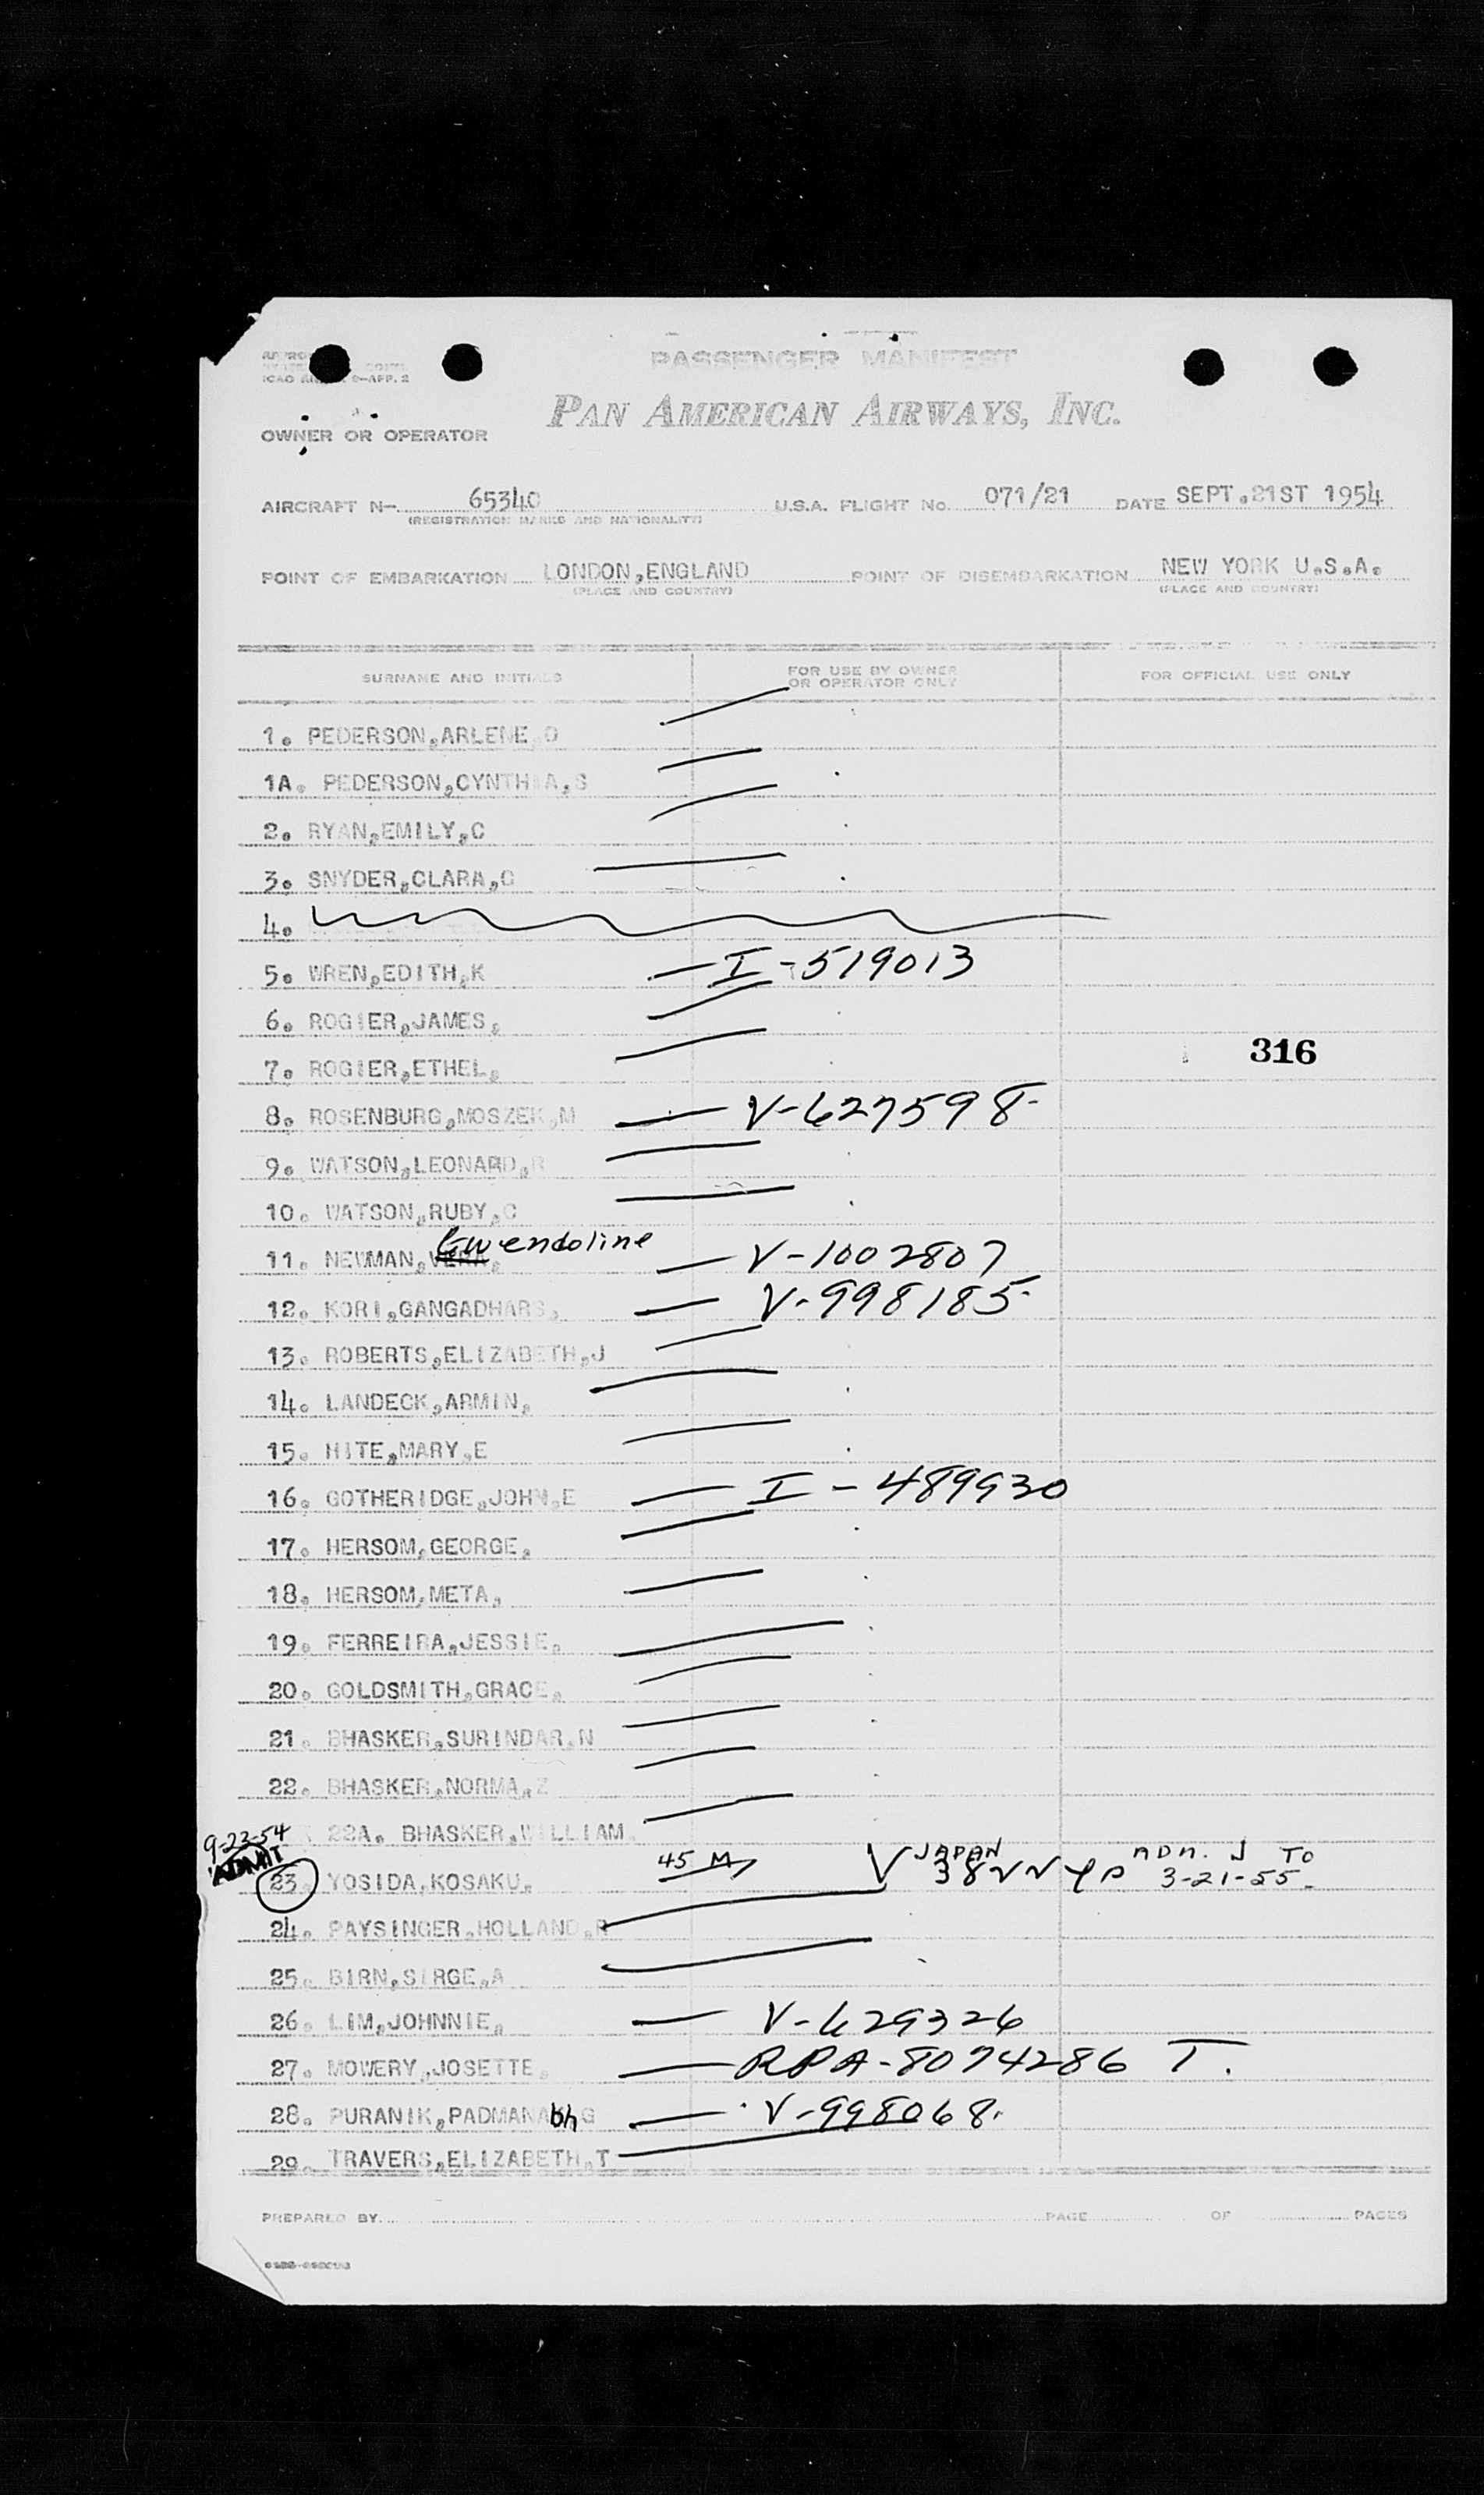 PASSENGER MANIFEST
ICAO
9-APP. 2
PAN AMERICAN AIRWAYS, INC.
OWNER OR OPERATOR
AIRCRAFT N- 65340 U.S.A. FLIGHT No. 071/21 DATE SEPT.21ST 1954
(REGISTRATION MARKS AND NATIONALITY)
POINT OF EMBARKATION LONDON,ENGLAND POINT OF DISEMBARKATION NEW YORK U.S.A.
(PLACE AND COUNTRY) (PLACE AND COUNTRY)
SURNAME AND INITIALS FOR USE BY OWNER OR OPERATOR ONLY FOR OFFICIAL USE ONLY
1. PEDERSON,ARLENE,O
1A. PEDERSON,CYNTHIA,S
2. RYAN,EMILY,C
3. SNYDER,CLARA,C
4.
5. WREN,EDITH,K I-519013
6. ROGIER,JAMES,
7. ROGIER,ETHEL,
316
8. ROSENBURG,MOSZEK,M V-627598
9. WATSON,LEONARD,R
10. WATSON,RUBY,C
Gwendoline
11. NEWMAN,VERA, V-1002807
12. KORI,GANGADHARS, V-998185
13. ROBERTS,ELIZABETH,J
14. LANDECK,ARMIN,
15. HITE,MARY,E
16. GOTHERIDGE,JOHN,E I-489930
17. HERSOM,GEORGE,
18. HERSOM,META,
19. FERREIRA,JESSIE,
20. GOLDSMITH,GRACE,
21. BHASKER,SURINDAR,N
22. BHASKER,NORMA,Z
22A. BHASKER,WILLIAM,
9-22-54
ADMIT
23. YOSIDA,KOSAKU, 45 M V JAPAN ADM. TO 3-21-55
24. PAYSINGER,HOLLAND,R
25. BIRN,SIRGE,A
26. LIM,JOHNNIE, V-629326
27. MOWERY,JOSETTE, RPA-8074286 T.
28. PURANIK,PADMANAbh,G V-998068
29. TRAVERS,ELIZABETH,T
PREPARED BY PAGE OF PAGES